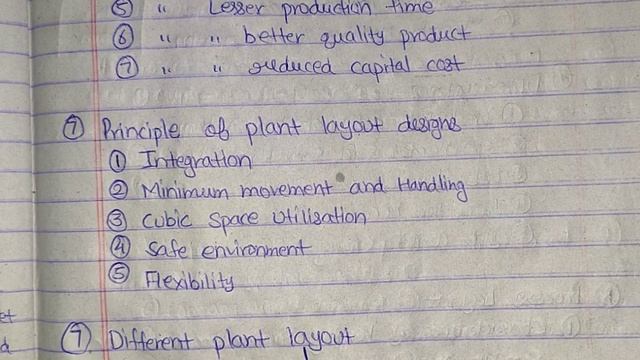 ⑤ " Lesser production time
⑥ " " better quality product
⑦ " " reduced capital cost
⑦ Principle of plant layout designs
① Integration
② Minimum movement and Handling
③ Cubic Space Utilisation
④ Safe environment
⑤ Flexibility
et
d ⑦ Different plant layout